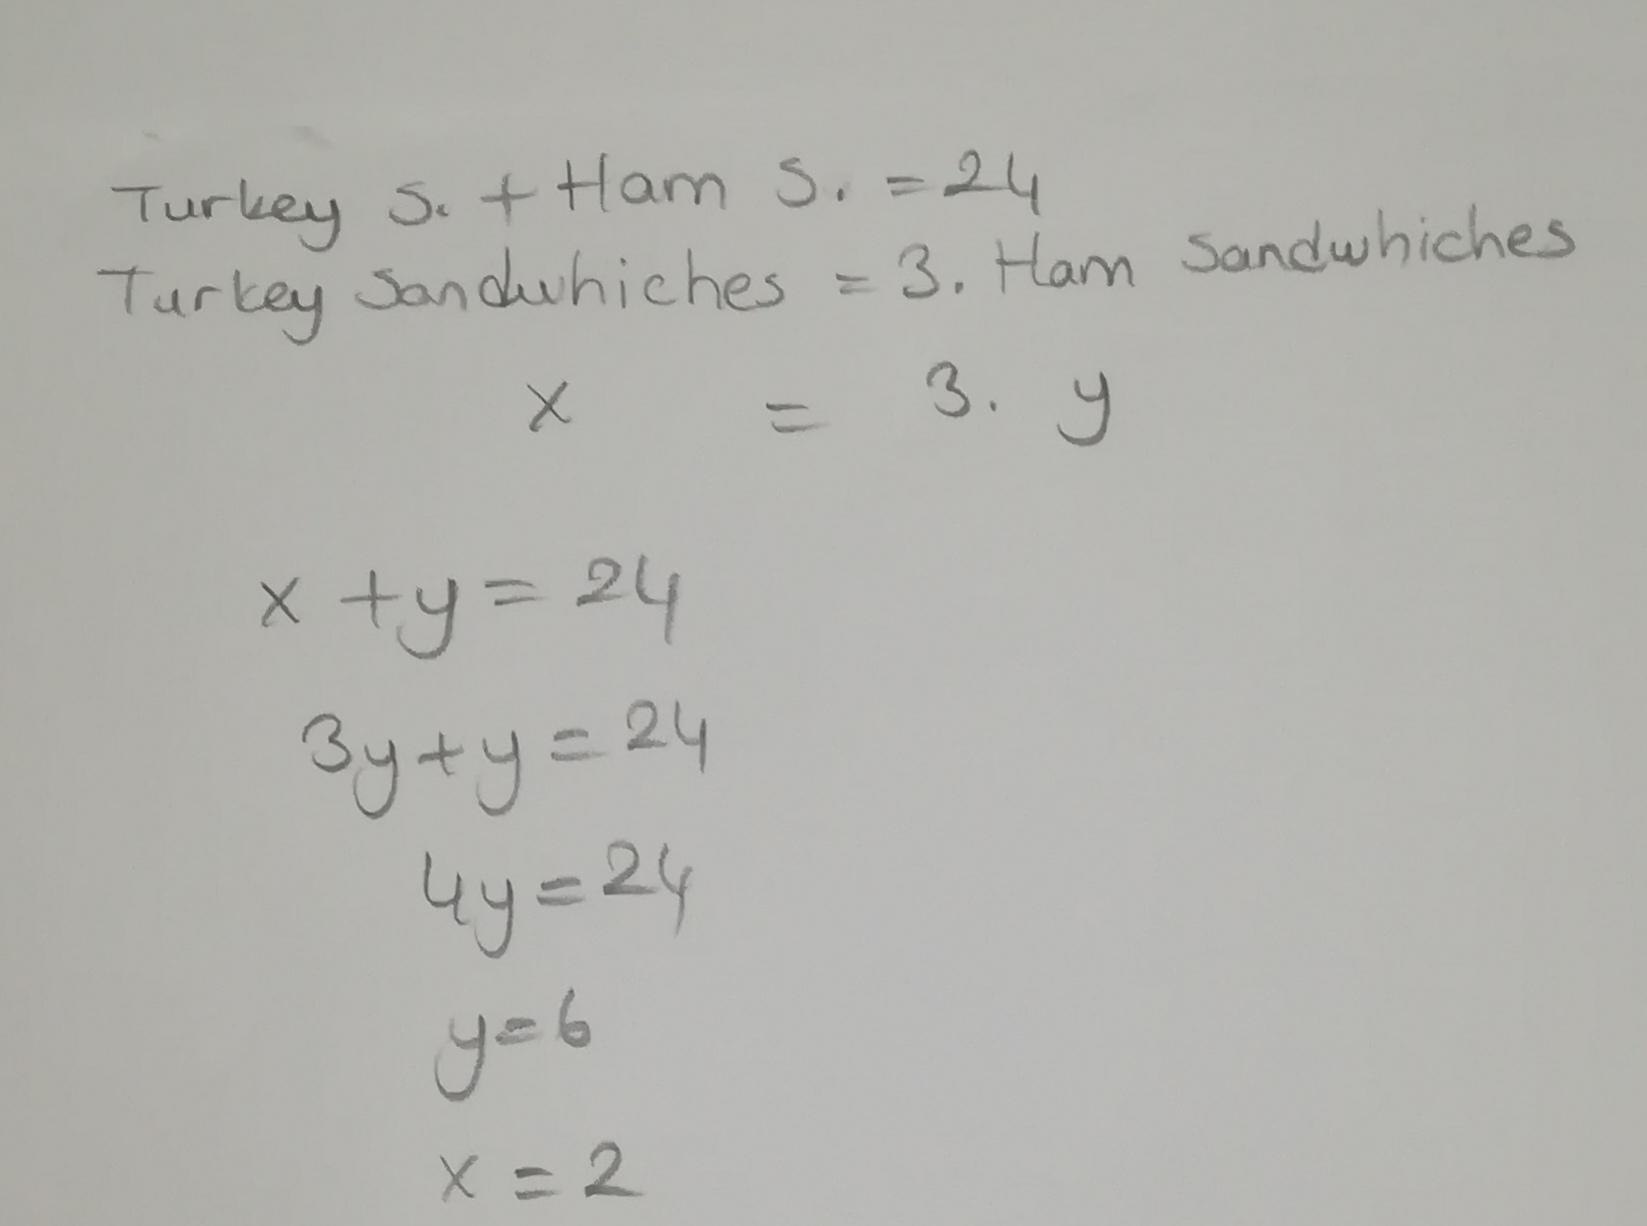 Turkey S. + Ham S. = 24
Turkey Sandwhiches = 3. Ham Sandwhiches
x = 3. y
x + y = 24
3y + y = 24
4y = 24
y = 6
x = 2